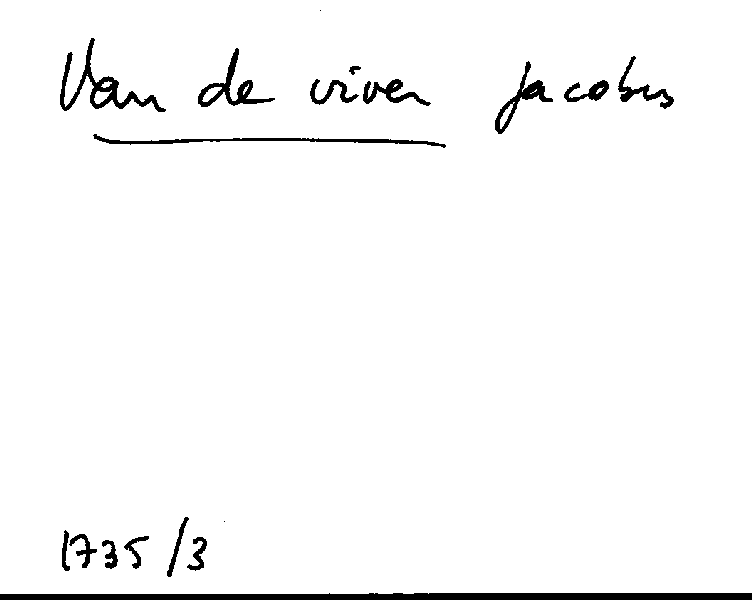 Van de viver Jacobus
1735/3